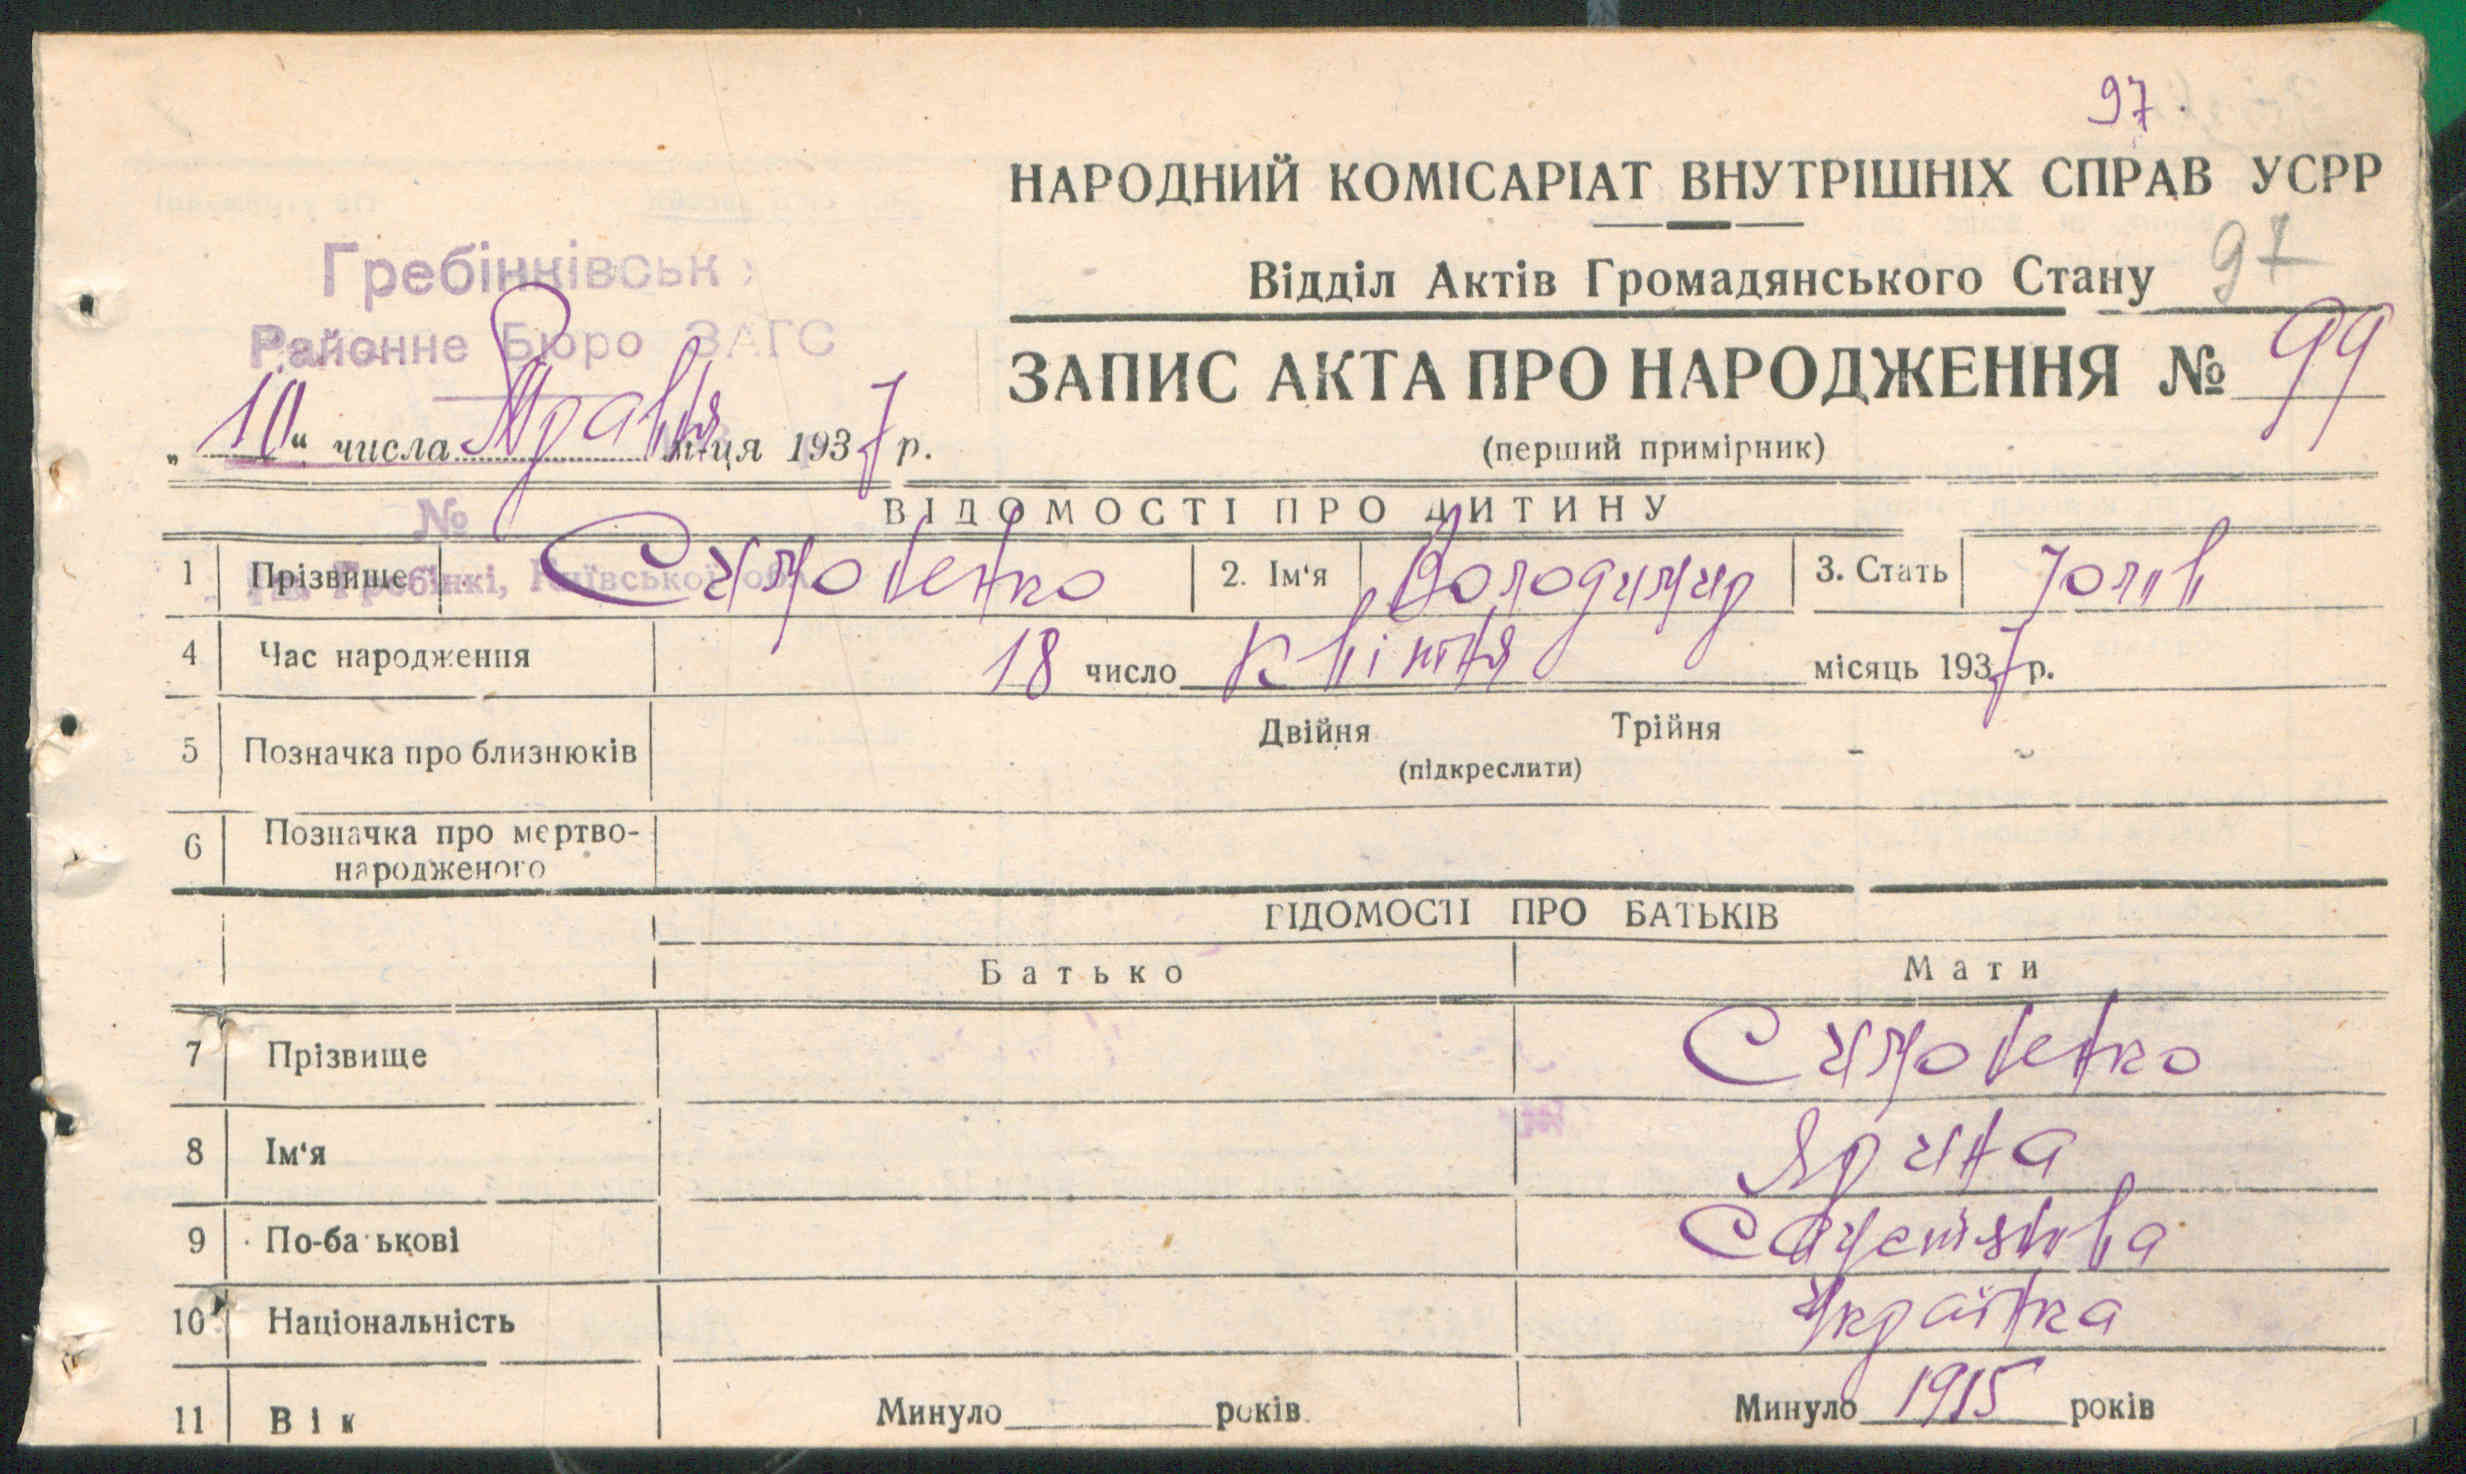 97
НАРОДНИЙ КОМІСАРІАТ ВНУТРІШНІХ СПРАВ УСРР
Відділ Актів Громадянського Стану 97
Гребінківськ
Районне Бюро ЗАГС
ЗАПИС АКТА ПРО НАРОДЖЕННЯ № 99
(перший примірник)
„10“ числа Травня м-ця 1937 р.
№
ВІДОМОСТІ ПРО ДИТИНУ
1 Прізвище Симоненко 2. Ім'я Володимир 3. Стать Чолів
Гребінкі, Київської обл.
4 Час народження 18 число Квітня місяць 1937 р.
5 Позначка про близнюків Двійня Трійня
(підкреслити)
6 Позначка про мертво-
народженого
ВІДОМОСТІ ПРО БАТЬКІВ
Батько Мати
7 Прізвище Симоненко
8 Ім'я Ярина
9 По-батькові
10 Національність Українка
11 Вік Минуло років Минуло 1915 років